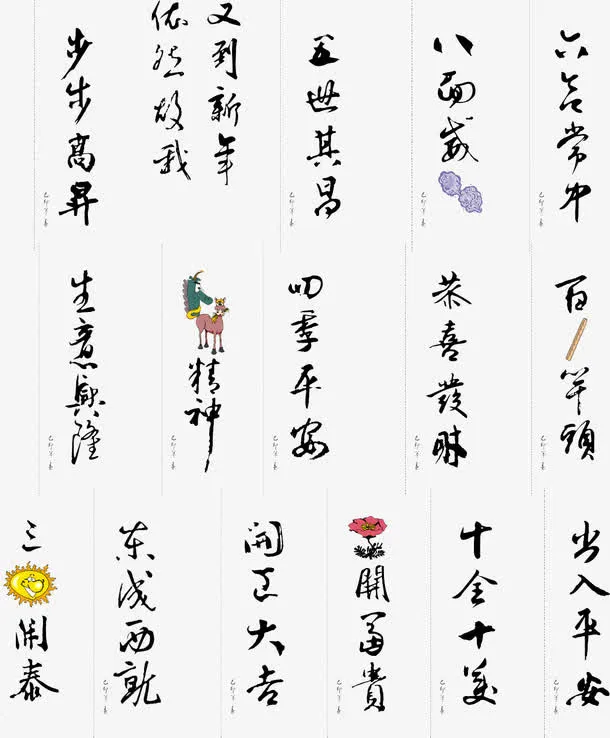 六合常中
八面威
五世其昌
又到新年
依然故我
步步高昇
百竿頭
恭喜發財
四季平安
精神
生意興隆
出入平安
十全十美
開富貴
開正大吉
東成西就
三開泰